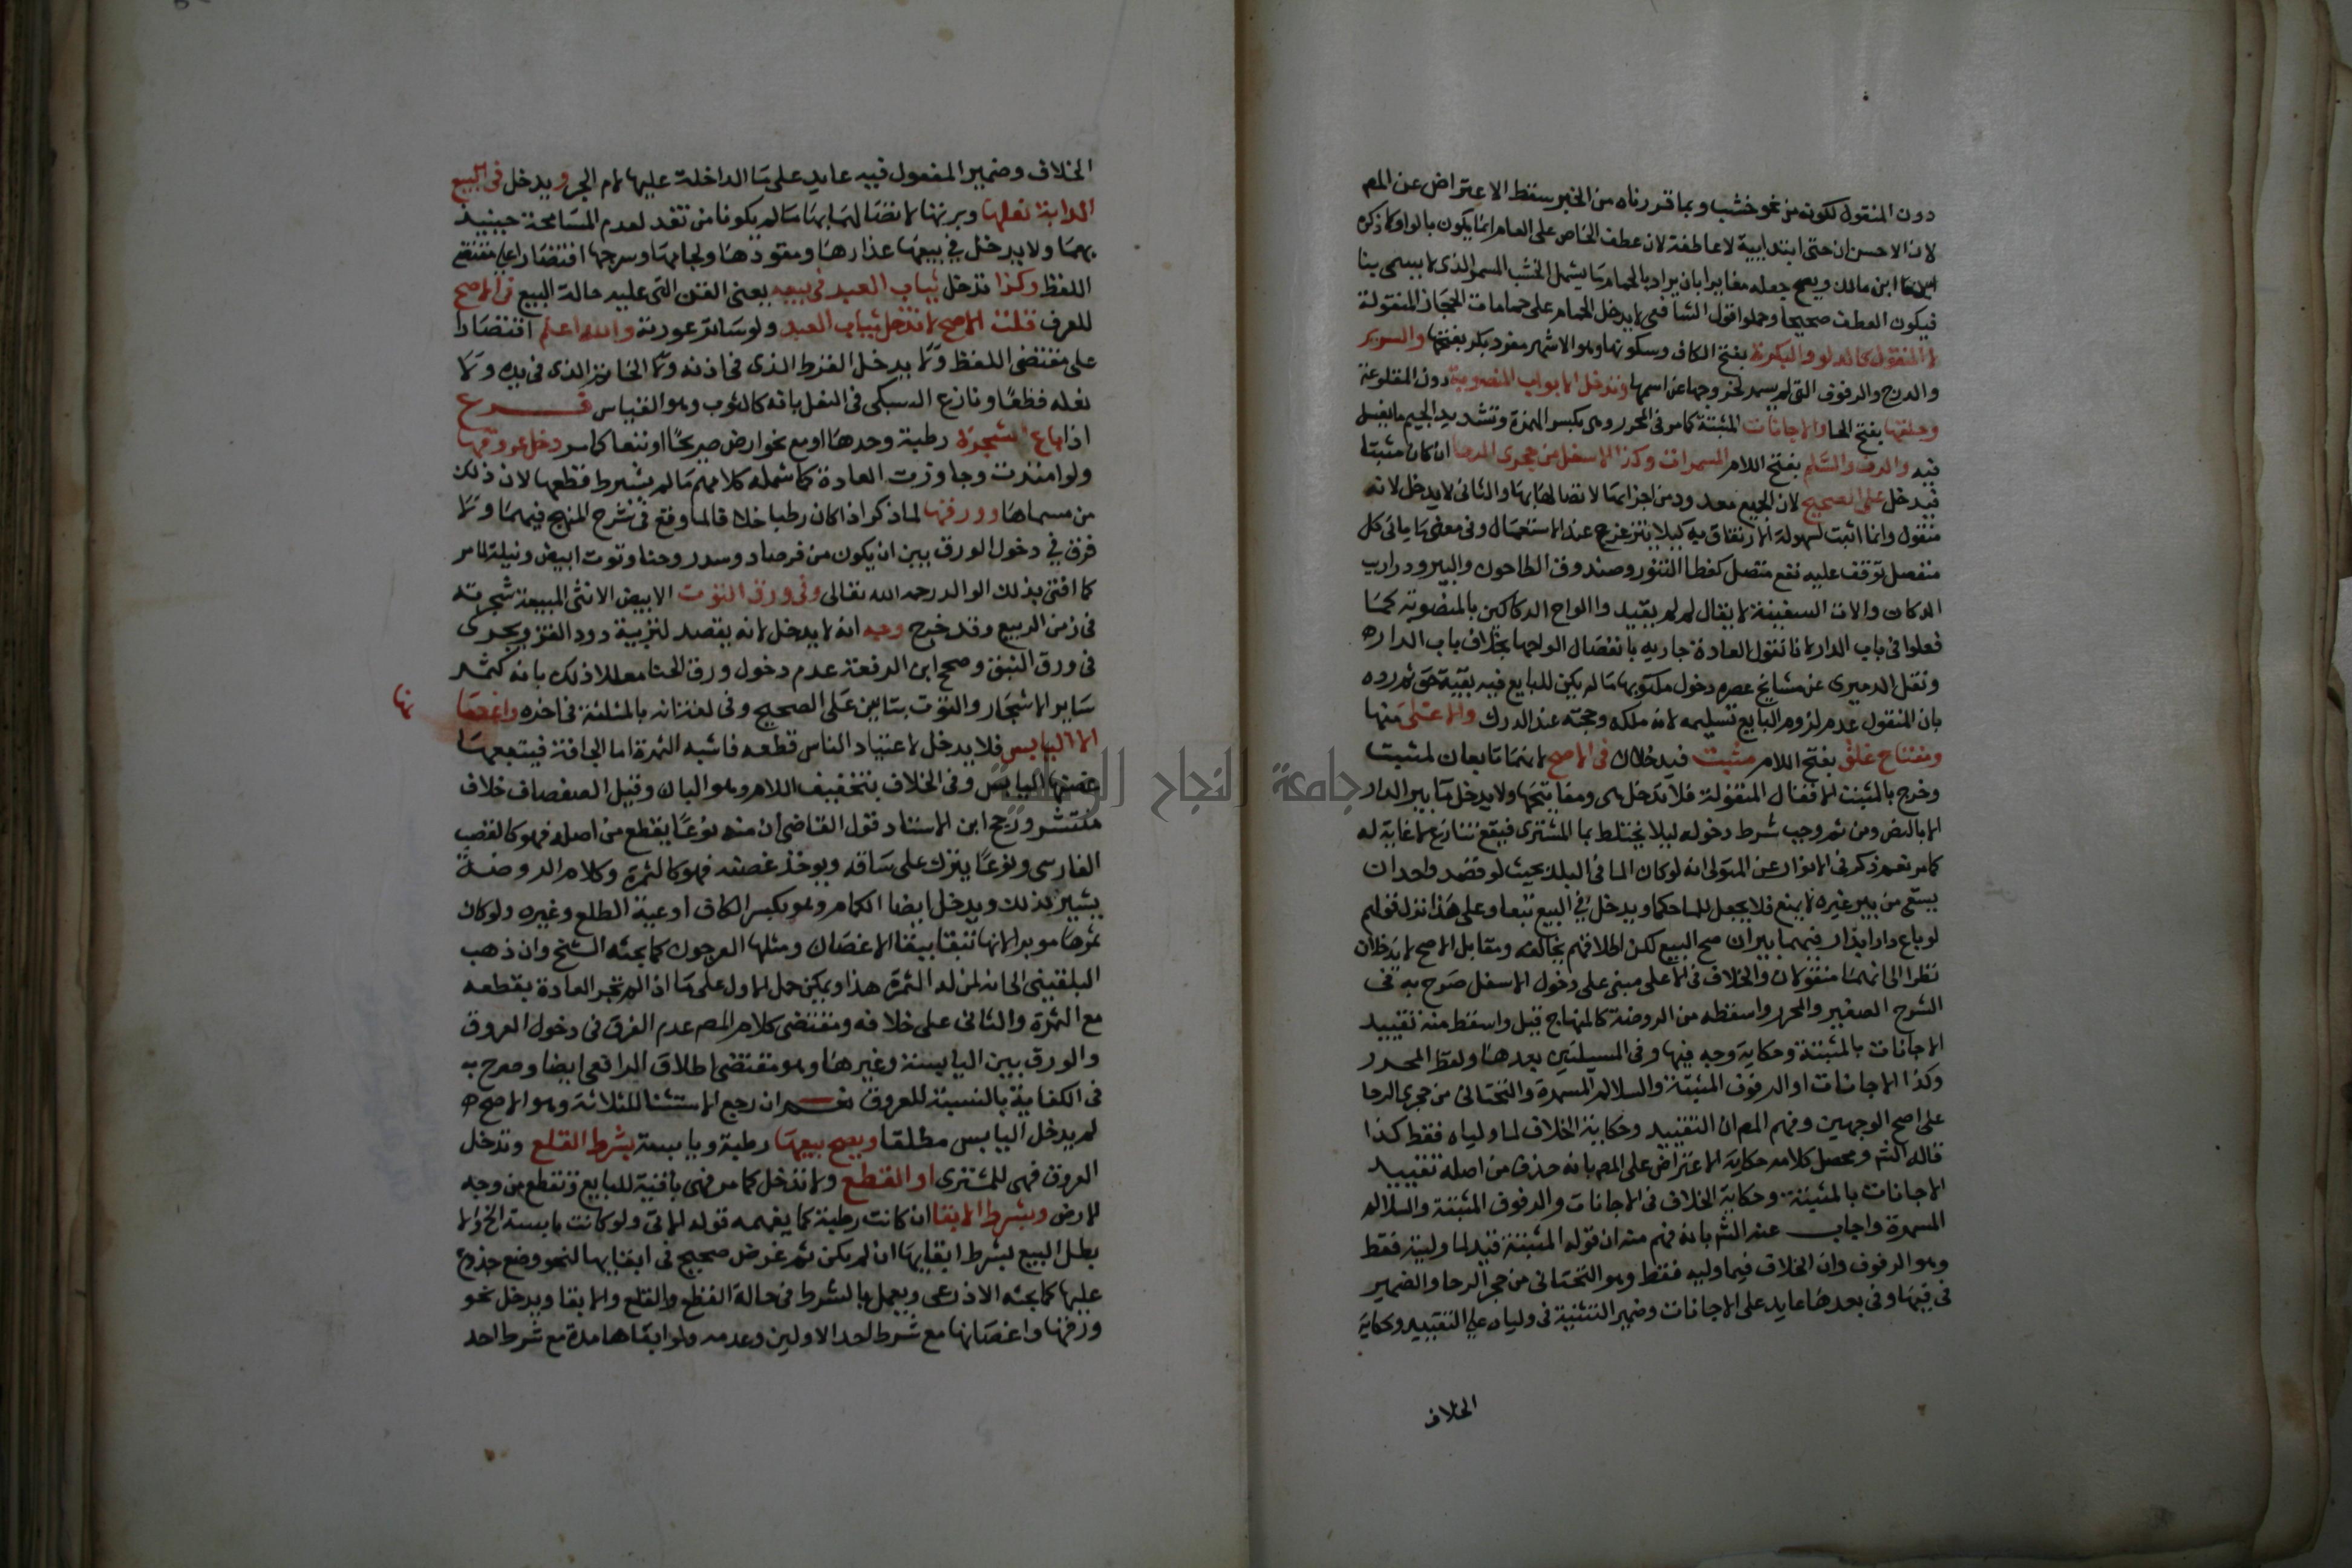 دون المنقول لكونه من نحو خشب وبما قررناه من الخبر سقط الاعتراض عن المص
لان الاحسن ان حتى ابتدايية لا عاطفة لان عطف الخاص على العام انما يكون بالواو كما ذكره
ابن مالك ويصح جعله مغايرا بان يراد بالحمام ما يشمل الخشب المسمر الذى لا يسمى بنا
فيكون العطف صحيحا وحملوا قول الشافعى لا يدخل الحمام على حمامات الحجاز المنقولة
لا المنقول كالدلو والبكرة بفتح الكاف وسكونها وهو الاشهر مفرد بكر بفتحها والسرير
والدرج والرفوف التى لم تسمر لخروجها عن اسمها وتدخل الابواب المنصوبة دون المقلوعة
وحلقها بفتح الحا والاجانات المثبتة كما مر فى المحرر وهى بكسر الهمزة وتشديد الجيم ما يغسل
فيه والرف والسلم بفتح اللام المسمران وكذا الاسفل من حجرى الرحا ان كان مثبتا
فيدخل على الصحيح لان الجميع معدود من اجزايها لاتصالها بها والثانى لا يدخل لانه
منقول وانما اثبت لسهولة الارتفاق به كيلا يتزعزع عند الاستعمال وفى معنى ما ياتى كل
منفصل توقف عليه نفع متصل كغطا التنور وصندوق الطاحون والبير ودراريب
الدكان والات السفينة لا يقال لم لم يقيد واالواح الدكاكين بالمنصوبة كما
فعلوا فى باب الدار لانا نقول العادة جاريه بانفصال الواحها بخلاف باب الدار ه
ونقل الدميرى عن مشايخ عصره دخول مكتوبها ما لم يكن للبايع فيه بقية حق ثم رده
بان المنقول عدم لزوم البايع تسليمه لانه ملكه وحجته عند الدرك والاعلى منهما
ومفتاح غلق بفتح اللام مثبت فيدخلان فى الاصح لانهما تابعان لمثبت
وخرج بالمثبت الاقفال المنقولة فلا تدخل هى ومفاتيحها ولا يدخل ما بير الدار
الا بالنص ومن ثم وجب شرط دخوله ليلا يختلط بما المشترى فيقع تنازع لا غاية له
كما مر نعم ذكر فى الانوار عن المتولى انه لو كان الما فى البلد بحيث لو قصد واحد ان
يستقى من بير غيره لا يمنع فلا يجعل للما حكما ويدخل فى البيع تبعا وعلى هذا نزل قولهم
لو باع دارا بدار فيهما بيران صح البيع لكن اطلاقهم يخالفه ومقابل الاصح لا يدخلان
نظرا الى انهما منقولان والخلاف فى الاعلى مبنى على دخول الاسفل صرح به فى
الشرح الصغير والمحرر واسقطه من الروضة كالمنهاج قيل واسقط منه تقييد
الاجانات بالمثبتة وحكاية وجه فيها وفى المسيلتين بعدها ولفظ المحرر
وكذا الاجانات او الرفوف المثبتة والسلالم المسمرة والتحتانى من حجرى الرحا
على اصح الوجهين وفهم المص ان التقييد وحكاية الخلاف لما ولياه فقط كذا
قاله الش ومحصل كلامه حكاية الاعتراض على المص بانه حذف من اصله تقييد
الاجانات بالمثبتة وحكاية الخلاف فى الاجانات والرفوف المثبتة والسلالم
المسمرة واجاب عنه الش بانه فهم منه ان قوله المثبتة قيد لما وليته فقط
وهو الرفوف وان الخلاف فيما وليه فقط وهو التحتانى من حجر الرحا والضمير
فى فيها وفى بعدها عايد على الاجانات وضمير التثنية فى ولياه على التقييد وحكاية
الخلاف
الخلاف وضمير المفعول فيه عايد على ما الداخلة عليها لام الجر ويدخل فى البيع
الدابة نعلها وبرتها لاتصالهما بها ما لم يكونا من نقد لعدم المسامحة حينيذ
بهما ولا يدخل فى بيعها عذارها ومقودها ولجامها وسرجها اقتصارا على مقتضى
اللفظ وكذا تدخل ثياب العبد فى بيعه يعنى القن التى عليه حالة البيع فى الاصح
للعرف قلت الاصح لا تدخل ثياب العبد ولو ساتر عورته والله اعلم اقتصارا
على مقتضى اللفظ ولا يدخل القرط الذى فى اذنه ولا الخاتم الذى فى يده ولا
نعله قطعا ونازع السبكى فى النعل بانه كالثوب وهو القياس فــرع
اذا باع شجرة رطبة وحدها او مع نحو ارض صريحا او تبعا كما مر دخل عروقها
ولو امتدت وجاوزت العادة كما شمله كلامهم ما لم يشترط قطعها لان ذلك
من مسماها وورقها لما ذكر اذا كان رطبا خلافا لما وقع فى شرح المنهج فيهما ولا
فرق فى دخول الورق بين ان يكون من فرصاد وسدر وحنا وتوت ابيض ونيلة لما مر
كما افتى بذلك الوالد رحمه الله تعالى وفى ورق التوت الابيض الانثى المبيعة شجرته
فى زمن الربيع وقد خرج وجه انه لا يدخل لانه يقصد لتربية دود القز ويجرى
فى ورق النبق وصحح ابن الرفعة عدم دخول ورق الحنا معللا ذلك بانه كثمر
ساير الاشجار والتوت بتاين على الصحيح وفى لغة انه بالمثلثة فى اخره واغصا
نها
الا اليابس فلا يدخل لاعتياد الناس قطعه فاشبه الثمرة اما الجافة فيتبعها
غصنها اليابس وفى الخلاف بتخفيف اللام وهو البان وقيل الصفصاف خلاف
منتشر ورجح ابن الاستاد قول القاضى ان منه نوعا يقطع من اصله فهو كالقصب
الفارسى ونوعا يترك على ساقه ويوخذ غصنه فهو كالثمرة وكلام الروضة
يشير لذلك ويدخل ايضا الكمام وهو بكسر الكاف اوعية الطلع وغيره ولو كان
ثمرها موبرا لانها تبقا ببقا الاغصان ومثلها العرجون كما بحثه الشيخ وان ذهب
البلقينى الى انه لمن له الثمرة هذا ويمكن حمل الاول على ما اذا لم تجر العادة بقطعه
مع الثمرة والثانى على خلافه ومقتضى كلام المص عدم الفرق فى دخول العروق
والورق بين اليابسة وغيرها وهو مقتضى اطلاق الرافعى ايضا وصرح به
فى الكفاية بالنسبة للعروق نعم ان رجع الاستثنا للثلاثة وهو الاصح ه
لم يدخل اليابس مطلقا ويصح بيعها رطبة ويابسة بشرط القلع وتدخل
العروق فهى للمشترى او القطع ولا تدخل كما مر فهى باقية للبايع وتقطع من وجه
الارض وبشرط الابقا ان كانت رطبة كما يفهمه قوله الاتى ولو كانت يابسة الخ والا
بطل البيع بشرط ابقايها ان لم يكن ثم غرض صحيح فى ابقايها لنحو وضع جذوع
عليها كما بحثه الاذرعى ويعمل بالشرط فى حالة القطع والقلع والابقا ويدخل نحو
ورقها واغصانها مع شرط احد الاولين وعدمه ولو ابقاها مدة مع شرط احد
جامعة النجاح الوطنية